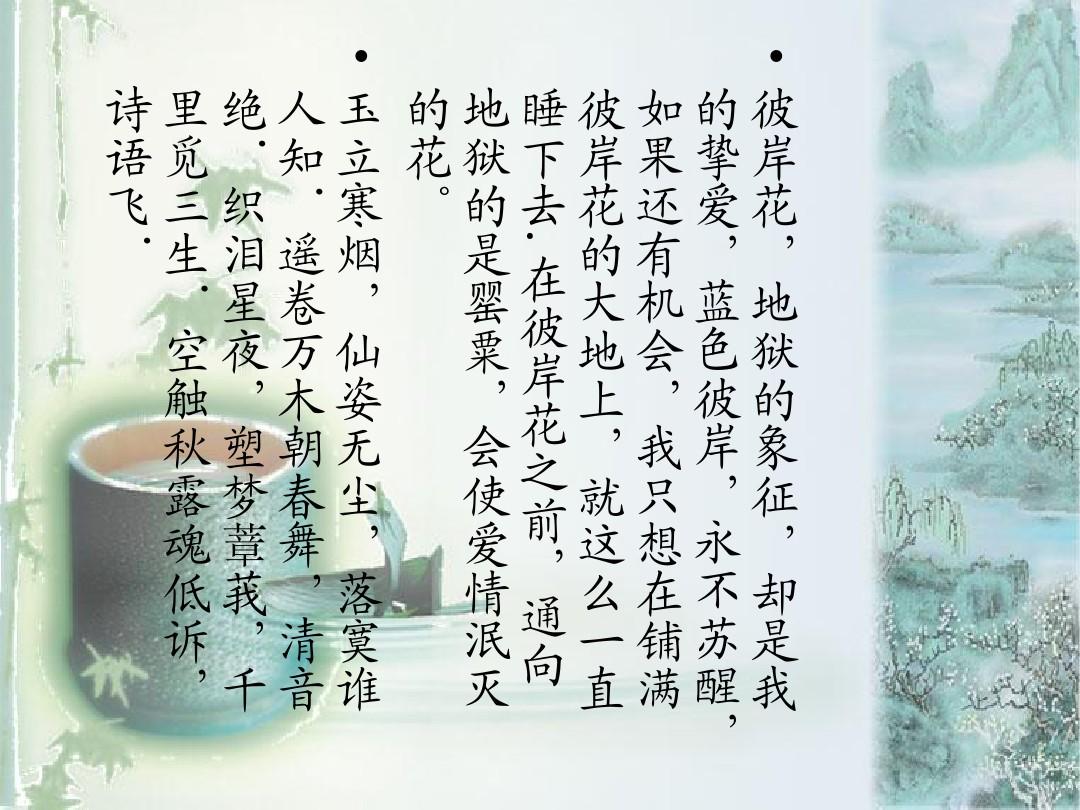 •彼岸花，地狱的象征，却是我
的挚爱，蓝色彼岸，永不苏醒，
如果还有机会，我只想在铺满
彼岸花的大地上，就这么一直
睡下去.在彼岸花之前，通向
地狱的是罂粟，会使爱情泯灭
的花。
•玉立寒烟，仙姿无尘，落寞谁
人知.遥卷万木朝春舞，清音
绝.织泪星夜，塑梦蕈莪，千
里觅三生.空触秋露魂低诉，
诗语飞.